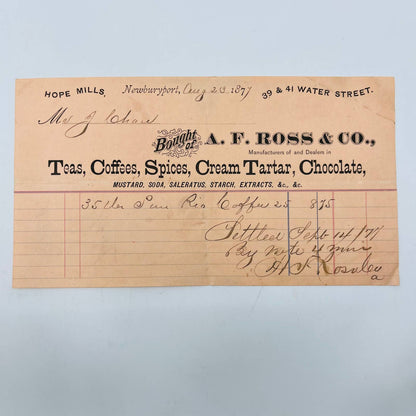 HOPE MILLS. Newburyport, Aug 23 1877 39 & 41 WATER STREET.
Mr J Chase
Bought of A. F. ROSS & CO.,
Manufacturers of and Dealers in
Teas, Coffees, Spices, Cream Tartar, Chocolate,
MUSTARD, SODA, SALERATUS, STARCH, EXTRACTS, &c., &c.
35 lbs Pure Rio Coffee 25 8 75
Settled Sept 14/77
By Note 4 mos
A F Ross & Co
a